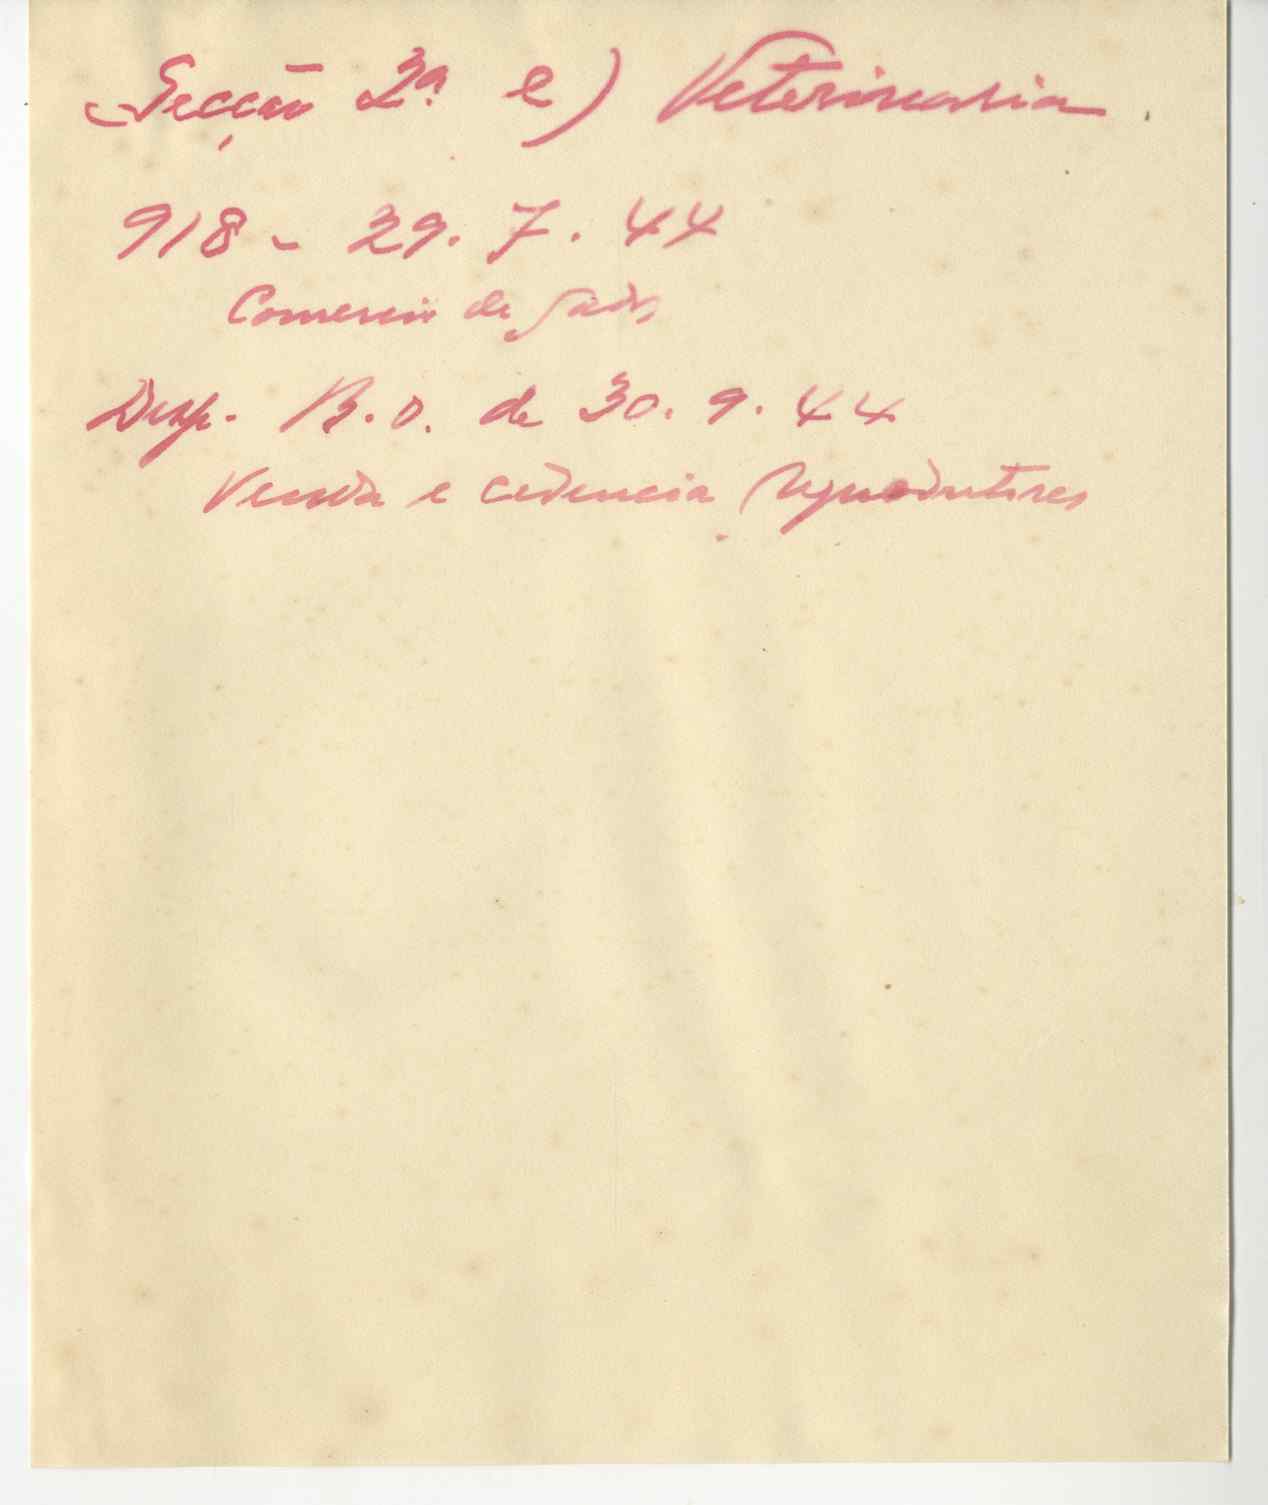 Secção 3ª e) Veterinaria
918 - 29.7.44
Comercio de gados
Desp. B.O. de 30.9.44
Venda e cedencia Reprodutores